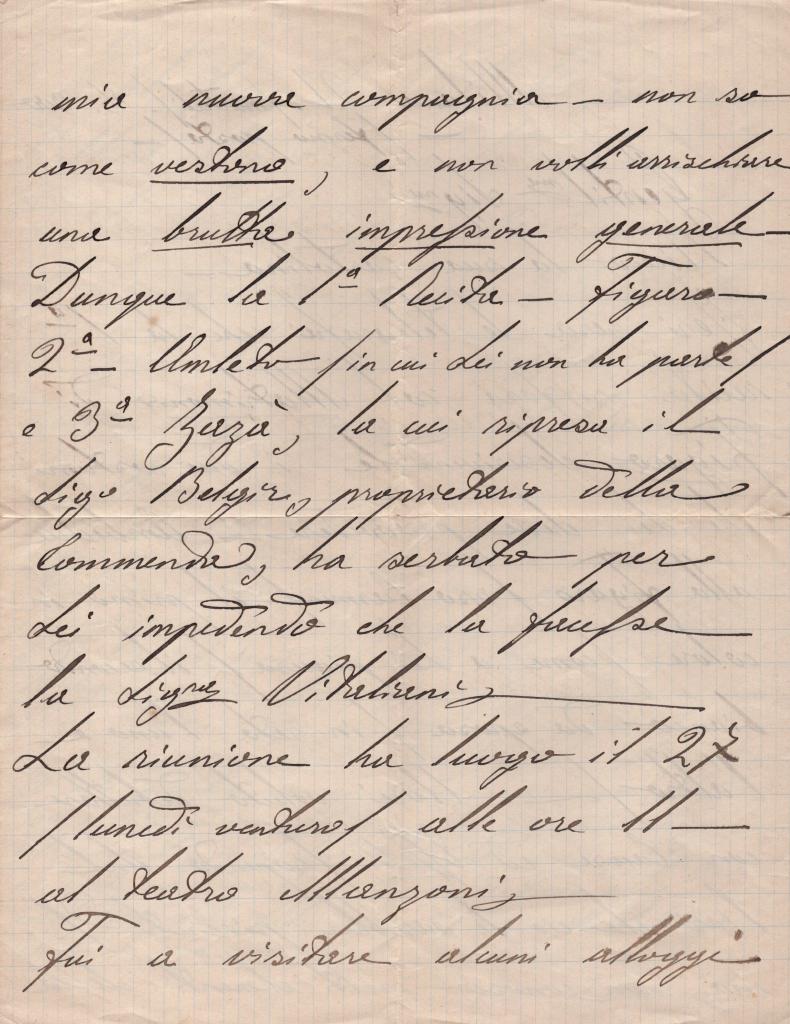 mia nuova compagnia — non so
come vestono, e non volli arrischiare
una brutta impressione generale —
Dunque la 1ª Recita — Figaro —
2ª — Amleto /in cui Lei non ha parte/
e 3ª Zazà, la cui ripresa il
Sigr Belgir, proprietario della
Commenda, ha serbato per
Lei impedendo che la facesse
la Sigra Vitaliani —
La riunione ha luogo il 27
/lunedì venturo/ alle ore 11 —
al teatro Manzoni —
Fui a visitare alcuni alloggi